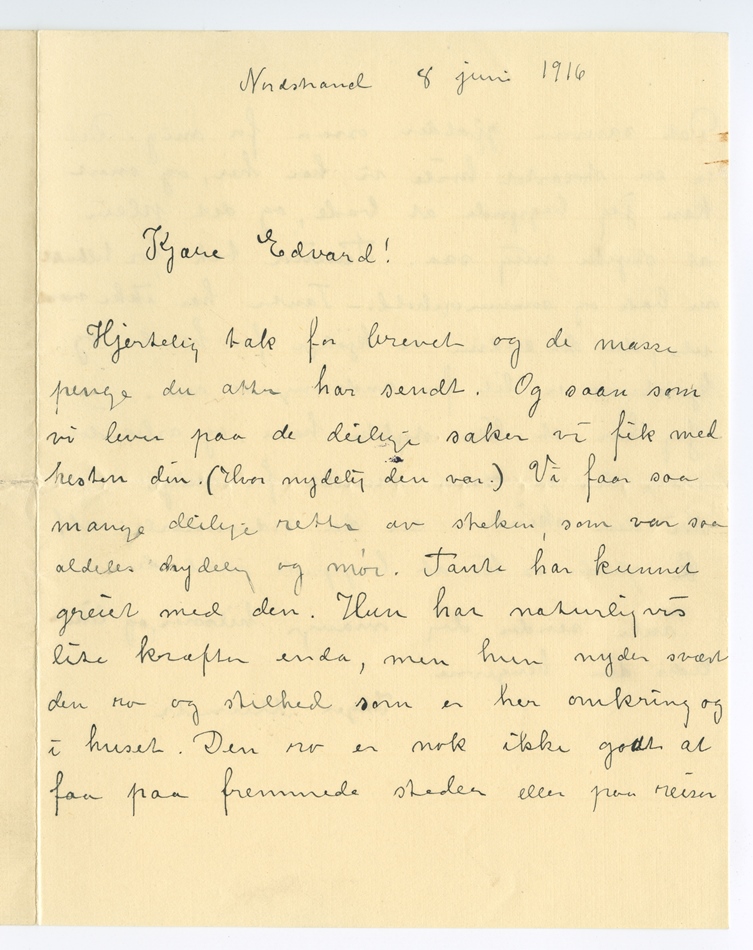 Nordstrand 8 juni 1916
Kjære Edvard!
Hjertelig tak for brevet og de masse
penge du atter har sendt. Og saan som
vi lever paa de deilige saker vi fik med
hesten din. (Hvor nydelig den var.) Vi faar saa
mange deilige retter av steken, som var saa
aldeles nydelig og mør. Tante har kunnet
greiet med den. Hun har naturligvis
lite kræfter enda, men hun nyder svært
den ro og stilhed som er her omkring og
i huset. Den ro er nok ikke godt at
faa paa fremmede steder eller paa reiser